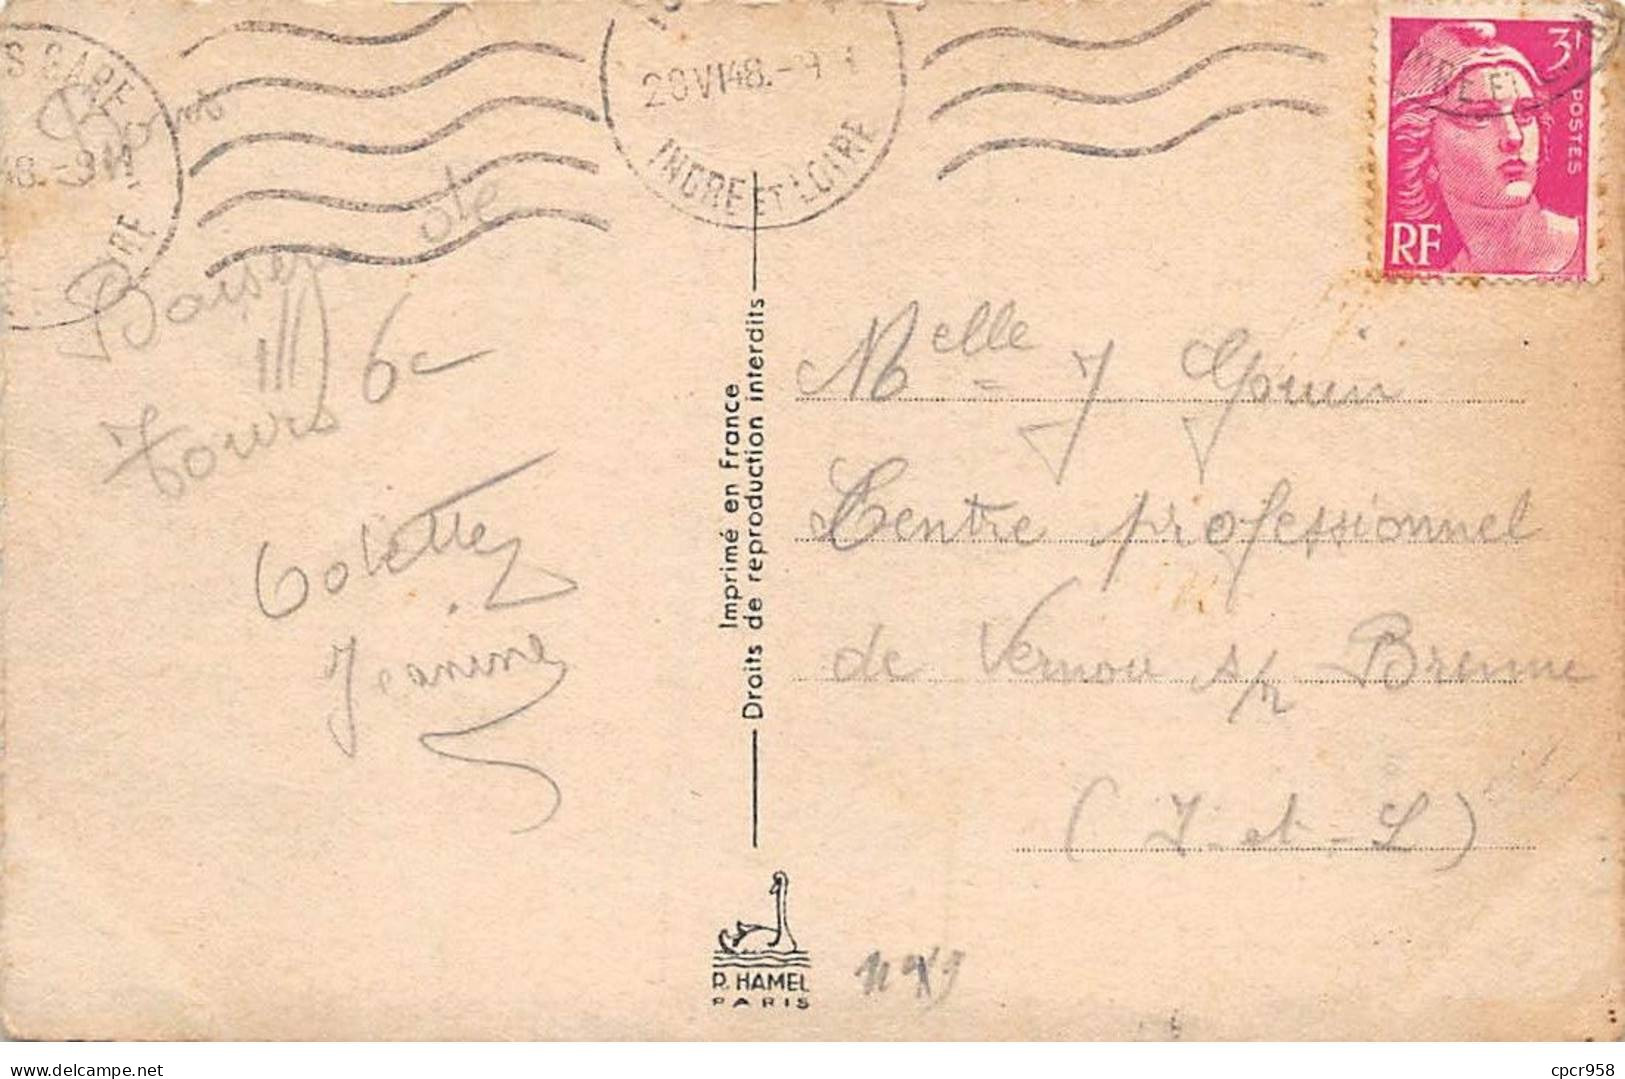 S GARE
48.-9H
28 VI 48.-9
INDRE ET LOIRE
3F
POSTES
RF
INDRE ET
Bons
Baisers de
Tours
Colette
Jeanine
Imprimé en France
Droits de reproduction interdits
Melle J Gouin
Centre professionnel
de Vernou s/r Brenne
(I-et-L)
R. HAMEL
PARIS
cpcr958